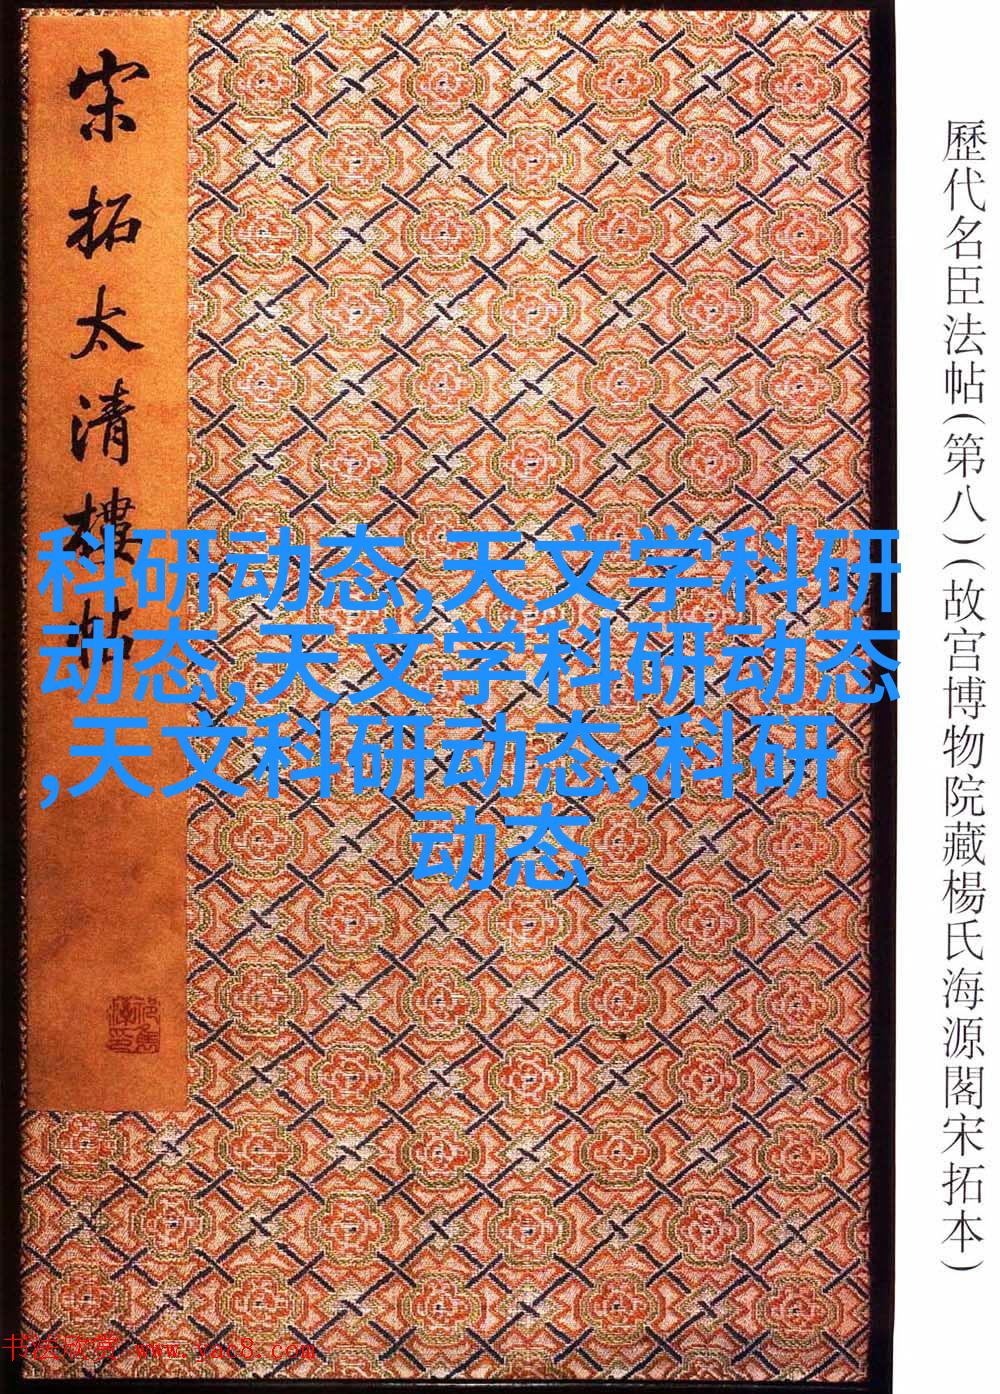 宋拓太清樓帖
歷代名臣法帖(第八)(故宫博物院藏楊氏海源閣宋拓本)
科研动态,天文学科研
动态,天文学科研动态
,天文科研动态,科研
动态
书法欣赏 www.yac8.com